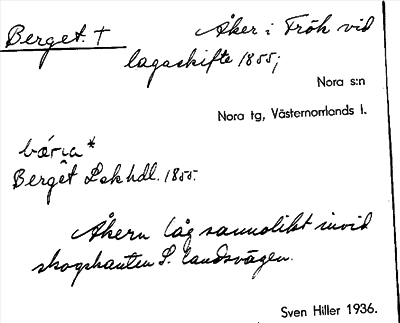 Berget. †
Åker i Frök vid
lagaskifte 1855;
Nora s:n
Nora tg, Västernorrlands l.
bǽri̭a *
Berget Lskhdl. 1855.
Åkern låg sannolikt invid
skogskanten S. landsvägen.
Sven Hiller 1936.